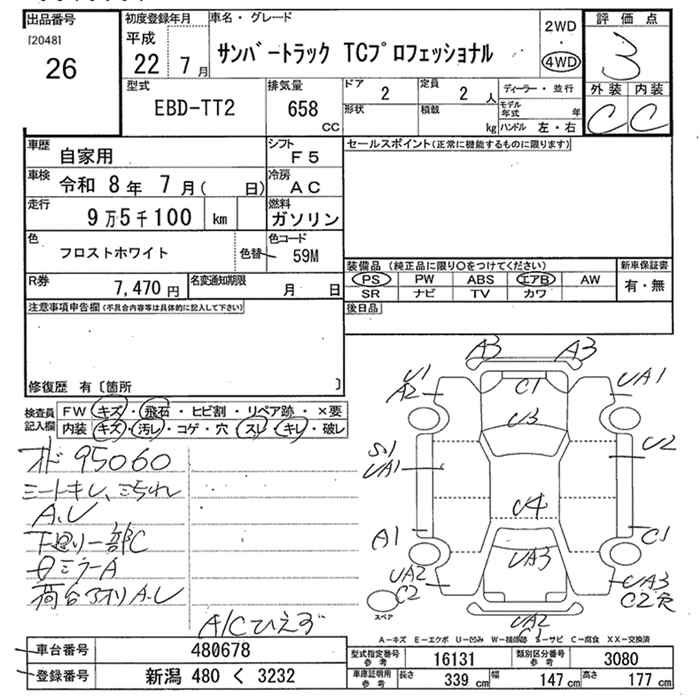 出品番号
[2048]
26
初度登録年月
平成
22 7月
車名・グレード
サンバートラック TCプロフェッショナル
2WD
・
4WD
評価点
3
外装 内装
C C
型式
EBD-TT2
排気量
658
CC
ドア 2
定員 2 人
形状
積載 kg
ディーラー・並行
モデル年式 年
ハンドル 左・右
車歴 自家用
シフト F5
車検 令和 8年 7月( 日)
冷房 AC
走行 9万5千100 km
燃料 ガソリン
色 フロストホワイト
色替
色コード 59M
R券 7,470円
名変通知期限 月 日
セールスポイント(正常に機能するものに限ります)
装備品 (純正品に限り○をつけてください)
新車保証書
PS PW ABS エアB AW
SR ナビ TV カワ
有・無
後日品
注意事項申告欄(不具合内容等は具体的に記入して下さい)
修復歴 有〔箇所 〕
検査員記入欄
FW キズ・飛石・ヒビ割・リペア跡・×要
内装 キズ・汚レ・コゲ・穴・スレ・キレ・破レ
95060
A.U
下廻り一部C
ミラーA
A.U
A/Cひえず
A3 A3
U1
A2
C1
UA1
U3
S1
UA1
U2
U4
A1
C1
UA3
UA2
C2
UA3
C2穴
スペア
UA2
C1
A-キズ E-エクボ U-凹み W-補修跡 S-サビ C-腐食 XX-交換済
車台番号 480678
登録番号 新潟 480 く 3232
型式指定番号 参考 16131
類別区分番号 参考 3080
車庫証明用 参考 長さ 339 cm 幅 147 cm 高さ 177 cm